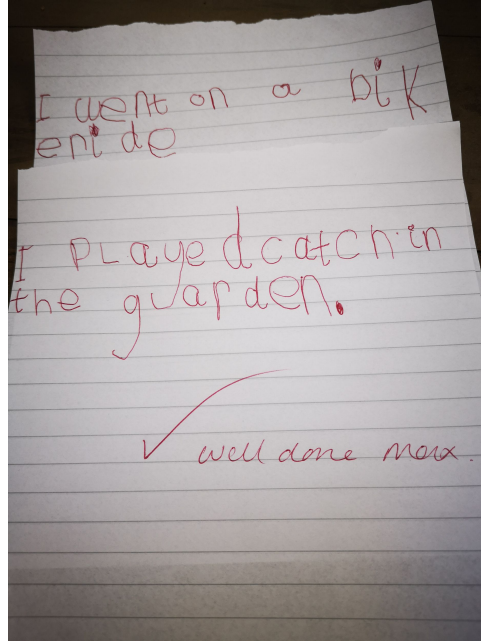 I went on a bik
eride
I Played catch in
the guarden.
well done Max.